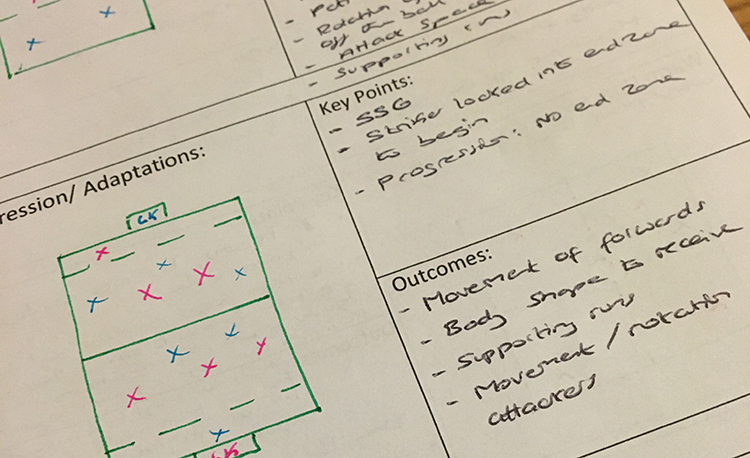 - Rotation of
off the ball
- Attack Space
- Supporting runs
Key Points:
- SSG
- Striker locked into end zone
to begin
- Progression: No end zone
ression/ Adaptations:
GK
GK
Outcomes:
- Movement of forwards
- Body shape to receive
- Supporting runs
- Movement / rotation
attackers